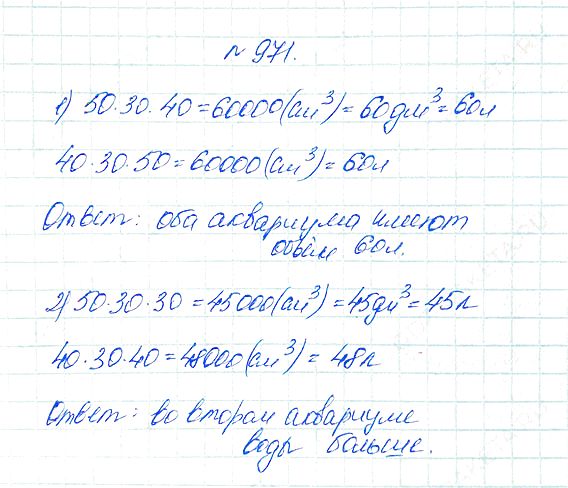 № 971.
1) 50·30·40=60000(см³)=60дм³=60л
40·30·50=60000(см³)=60л
Ответ: оба аквариума имеют
объём 60л.
2) 50·30·30=45000(см³)=45дм³=45л
40·30·40=48000(см³)=48л
Ответ: во втором аквариуме
воды больше.